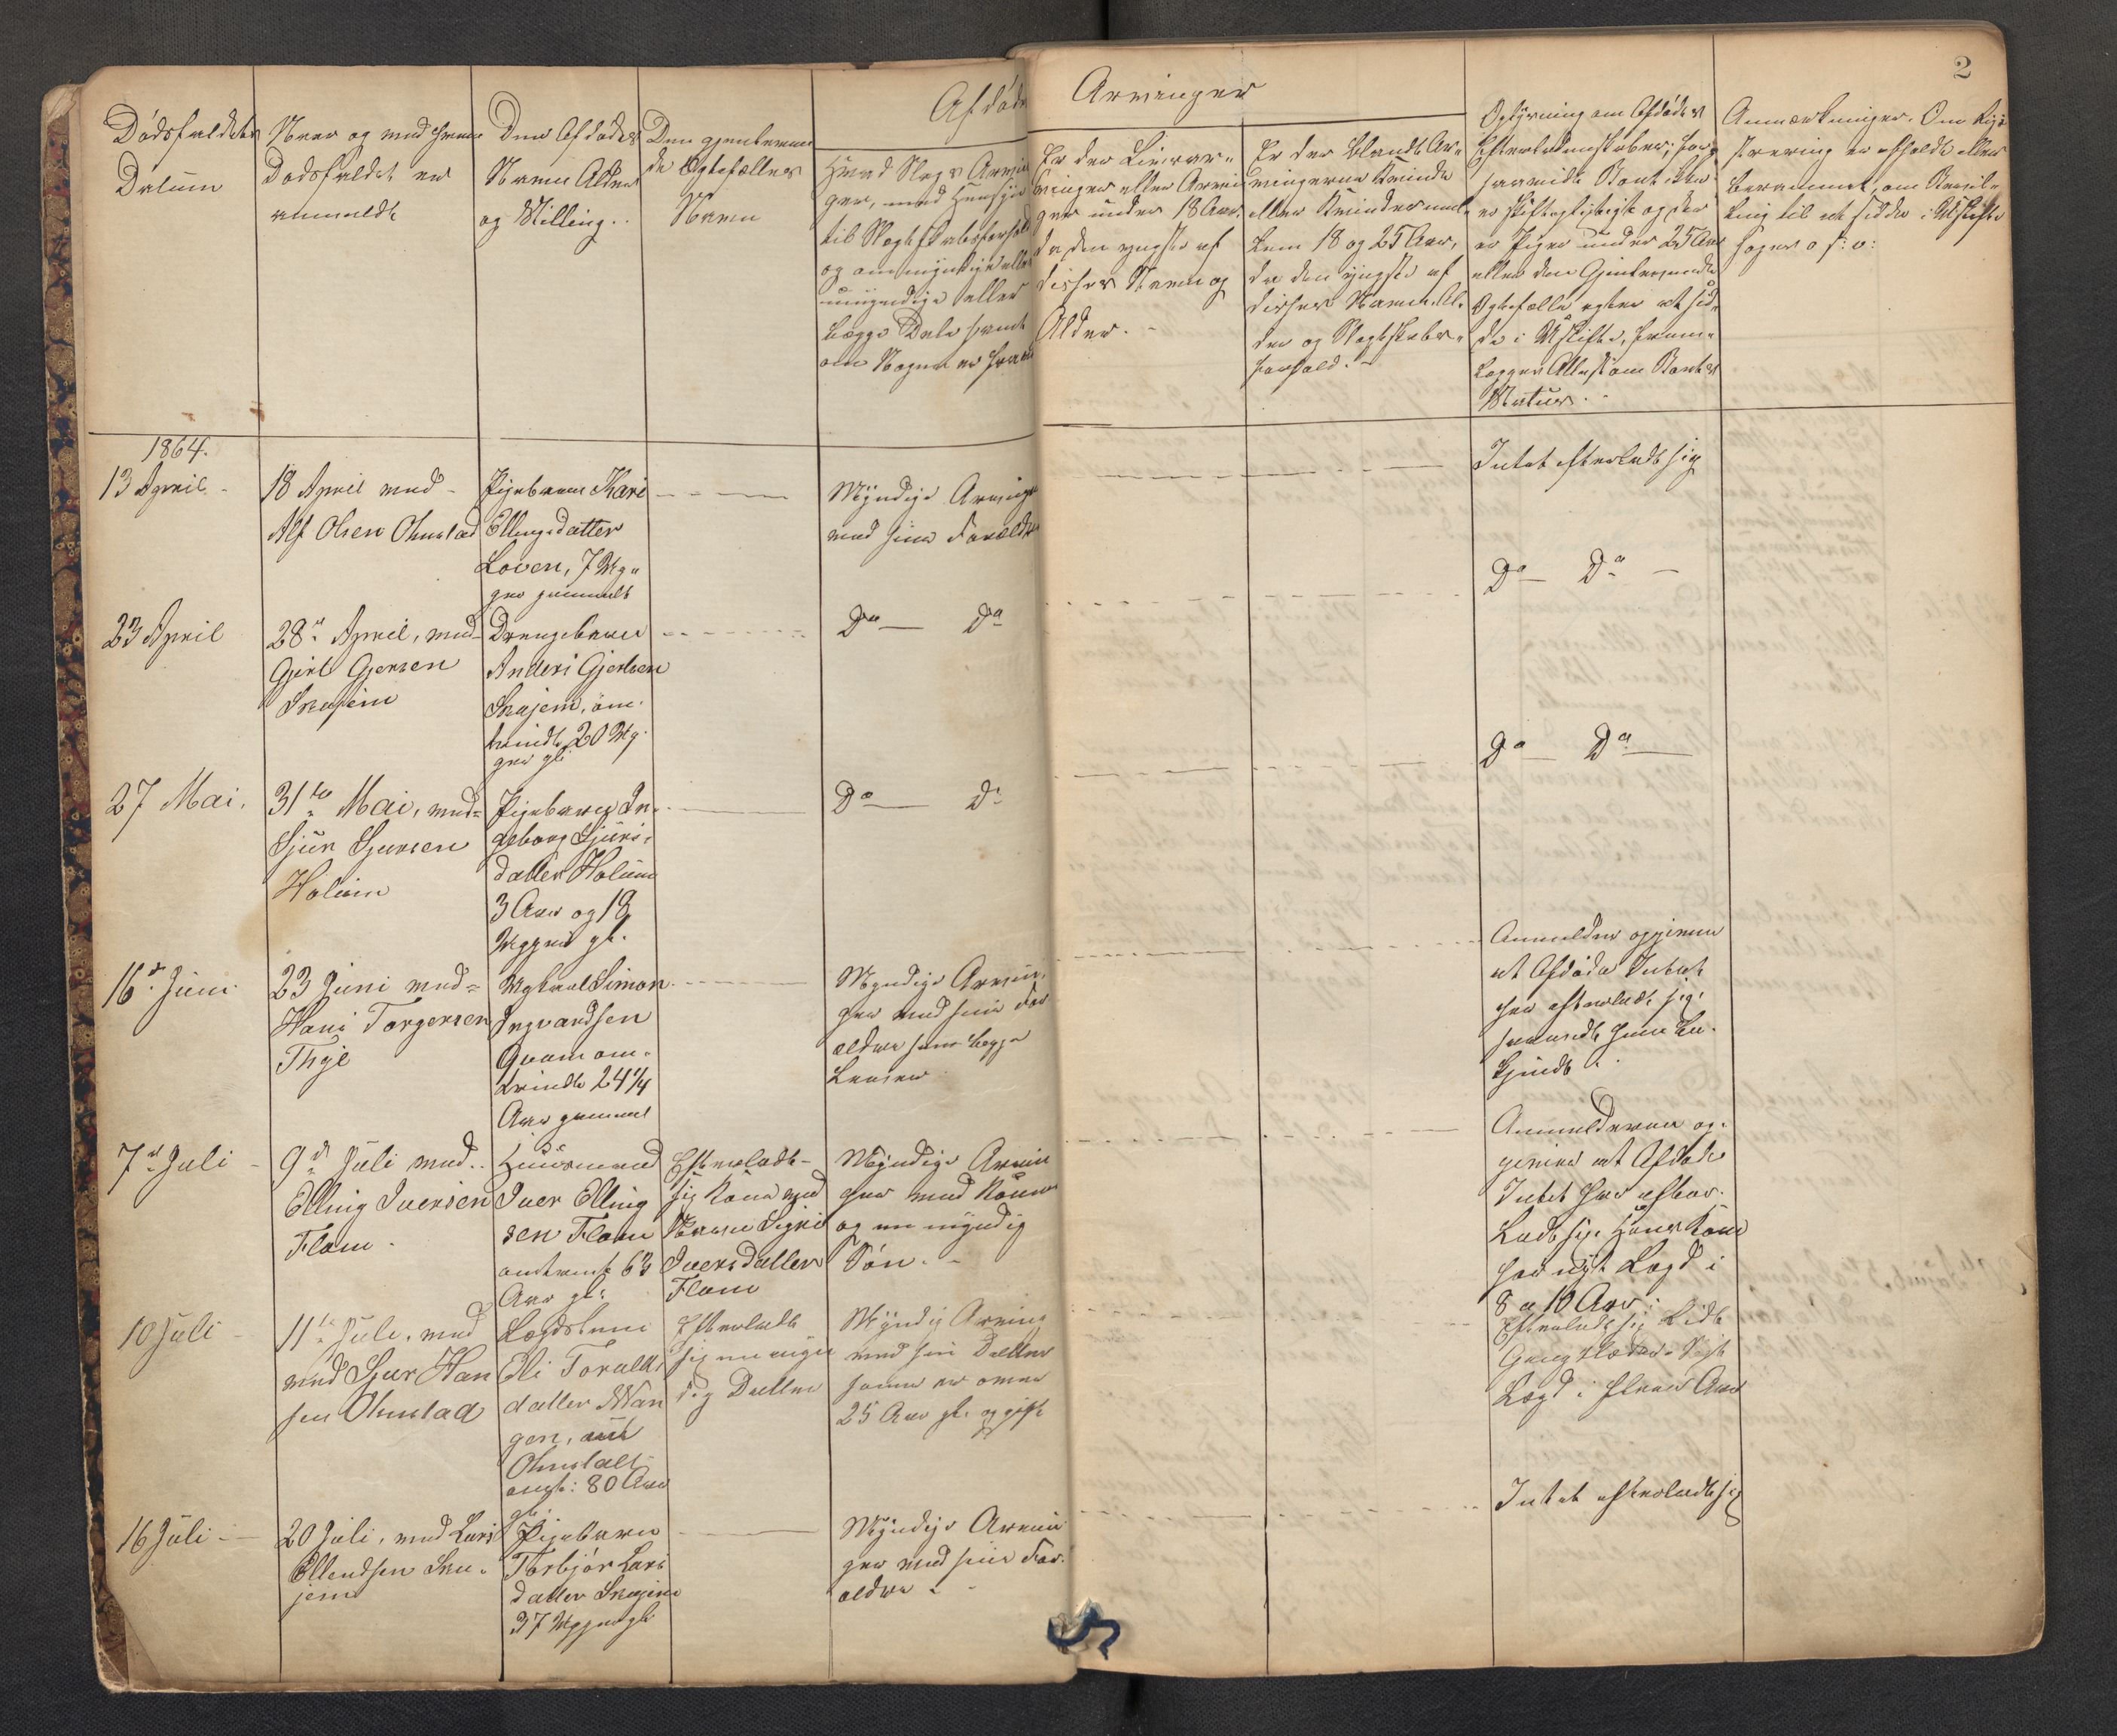 2
Afdødes Arvinger
Dødsfaldets
Datum
Naar og med hvem
Dødsfaldet er
anmeldt
Den Afdødes
Navn Alder
og Stilling.
Den gjenleven
de Ægtefælles
Navn
Hvad Slags Arvin
ger, med Hensyn
til Slægtskabsforhold
og om myndige eller
umyndige eller
begge Dele samt
om Nogen er
Er der Livsar-
vinger eller Arvin
ger under 18 Aar,
da den yngste af
disses Navn og
Alder.
Er der blandt Ar-
vingerne Kvinde
eller Kvinder mel-
lem 18 og 25 Aar,
da den yngste af
disses Navn, Al-
der og Slægtskabs-
forhold.
Oplysning om Afdødes
Efterladenskaber;
Boet ikke
er skiftepligtigt og der
er Piger under 25 Aar
eller den Gjenlevende
Ægtefælle agter at sid-
de i Uskifte, frem-
lægges Attest om Boets
Status.
Anmærkninger. Om Regi
strering er afholdt eller
berammet, om Bevil-
ling til at sidde i Uskifte
haves o s: v:
1864.
13 April
18 April med
Alf Olsen Ohnstad
Pigebarn Kari
Ellingsdatter
Loven, 7 Uge
ger gammelt
Myndige Arvinger
med sine Forældre
Intet efterladt sig
23 April
28de April, med
Gjert Gjersen
Skajem
Drengebarn
Anders Gjertsen
Skajem, om-
trindt 20 Uge
ger gl:
Do Do
Do Do
27 Mai.
31te Mai, med
Sjur Sjursen
Holum
Pigebarn In-
geborg Sjurs-
datter Holum
3 Aar og 18
Uger gl.
Do Do
Do Do
16de Juni
23 Juni med
Hans Torgersen
Thyje
Ugkarl Simon
Ingvardsen
Qvam om-
trindt 24 1/4
Aar gammel
Myndige Arvin-
ger med sine For
ældre som begge
Lever
Anmelder opgiver
at Afdøde Intet
har efterladt sig,
saavidt ham be-
kjendt
7de Juli
9de Juli med
Elling Iversen
Flam
Huusmand
Iver Elling
sen Flam
omtrent 63
Aar gl:
Efterladt
sig Kone ved
Navn Sigri
Iversdatter
Flam
Myndige Arvin
ger med Konen
og en myndig
Søn.
Anmelderen op-
giver at Afdøde
Intet har efter-
ladt sig. Hans Kone
har nydt Lægd i
8 a 10 Aar.
10 Juli
11te Juli, med
med Sjur Han
sen Ohnstad
Lægdslem
Eli Torulds
datter Wan
gen,
Ohnstad
omtr: 80 Aar
gl.
Efterladt
sig en myn
dig Datter
Myndig Arving
med sin Datter
som er over
25 Aar gl. og gift
Efterladt sig Lidt
Gangklæder. Nydt
Lægd i flere Aar
16 Juli
20 Juli, med Lars
Ellendsen Ska-
jem
Pigebarn
Torbjør Lars
datter Skajem
37 Uger gl
Myndige Arvin
ger med sine For-
ældre
Intet efterladt sig